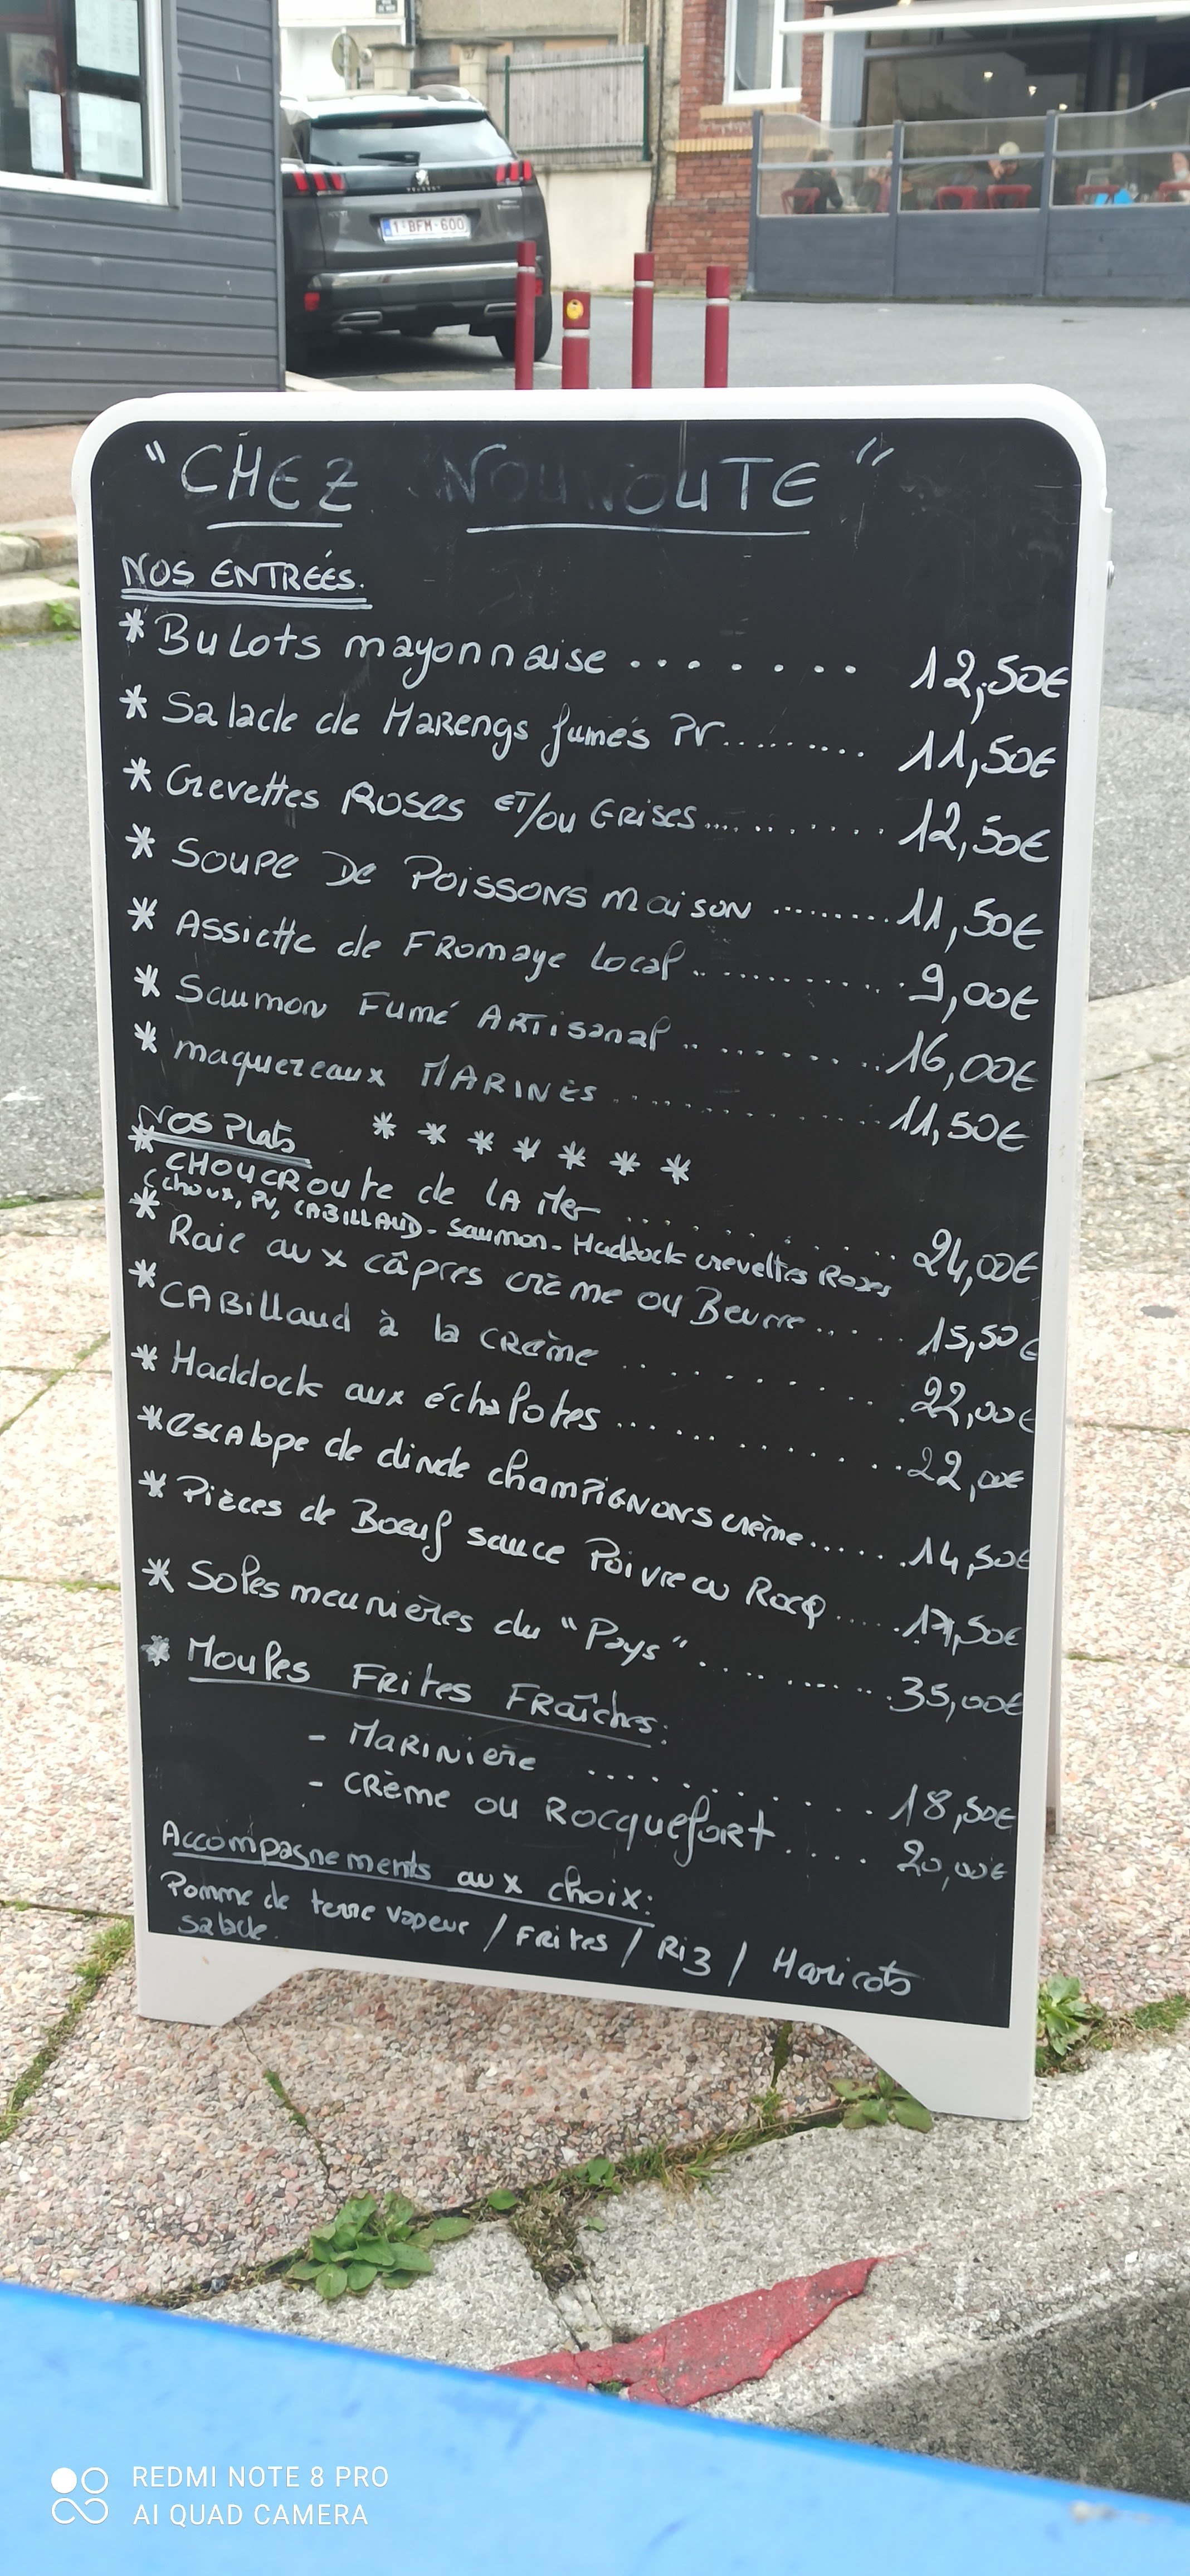 1-BFM-600
PEUGEOT
"CHEZ NOUNOUTE"
NOS ENTRÉES.
* BuLots mayonnaise ....... 12,50€
* Salade de HaRengs fumés PV......... 11,50€
* Crevettes ROSES ET/ou GRISES.... ....... 12,50€
* SOUPE DE POISSONS maison ........ 11,50€
* Assiette de FRomage Local.. .......... 9,00€
* Saumon Fumé ARTisanal .. ........ 16,00€
* maquereaux MARINÉS .............. 11,50€
NOS Plats * * * * * * *
* CHOUCROute de LA Mer ........... 24,00€
(choux, PV, CABILLAUD - Saumon - Haddock crevettes Roses
* Raie aux câpres crème ou Beurre...... 15,50€
* CABillaud à la CRème .......... 22,00€
* Haddock aux échalotes ............ 22,00€
* escalope de dinde champignons crème....... 14,50€
* Pièces de Boeuf sauce Poivre ou Rocq..... 17,50€
* Soles meunières du "Pays" .......... 35,00€
* Moules FRites FRaîches:
- MARINIère ............ 18,50€
- CRème ou Rocquefort ..... 20,00€
Accompagnements aux choix:
Pomme de terre vapeur / FRites / Riz / Haricots
salade.
REDMI NOTE 8 PRO
AI QUAD CAMERA